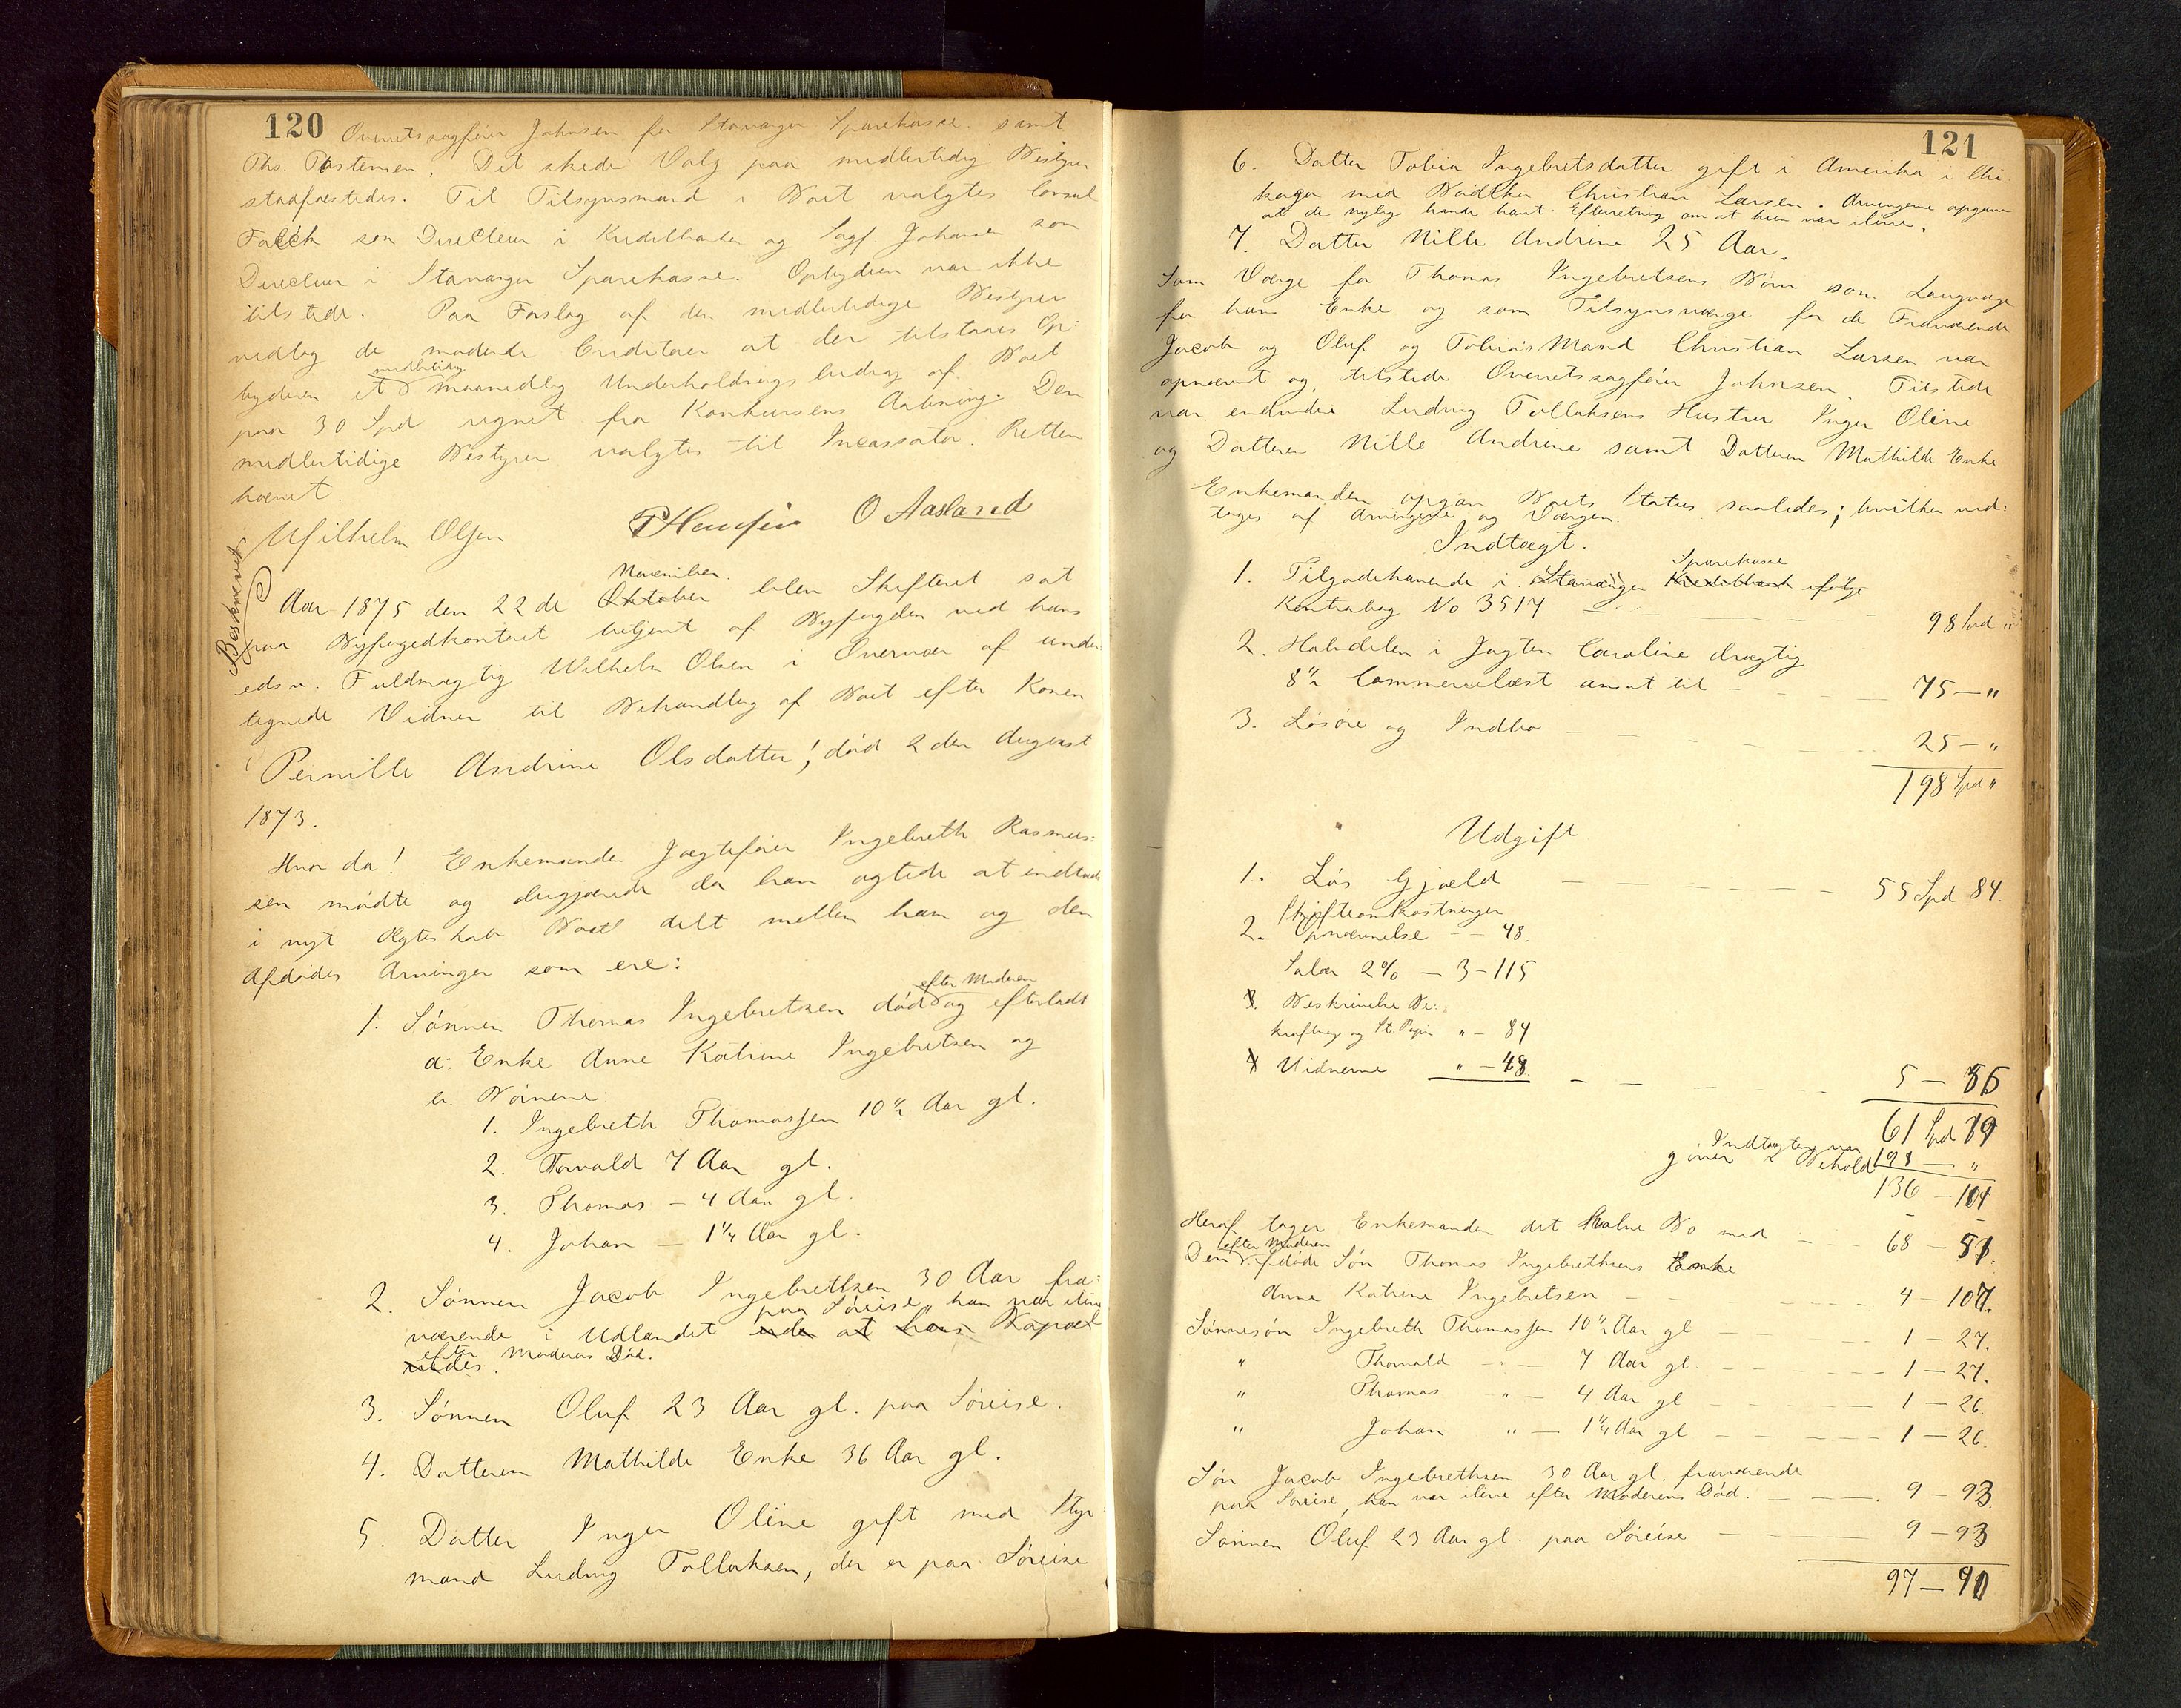 120
Overretssagfører Johnsen for Stavanger Sparekasse samt
Ths. Thastensen. Det skede Valg paa midlertidig Bestyrer
stadfæstedes. Til Tilsynsmænd i Boet valgtes Consul
Falck som Directeur i Kreditbanken og Sagf. Johnsen som
Directeur i Stavanger Sparekasse. Opbyderen var ikke
tilstede. Paa Forslag af den midlertidige Bestyrer
vedtog de mødende Creditorer at der tilstaaes Op:
byderen et midlertidig maanedlig Underholdnings bidrag af Boet
paa 30 Spd regnet fra Konkursens Aabning. Den
midlertidige Bestyrer valgtes til Incassator. Retten
hævet.
Wilhelm Olsen O Aasland
Beskrevet
Aar 1875 den 22 de Oktober November blev Skifteret sat
paa Byfogedkontoret betjent af Byfogden ved hans
edsv. Fuldmægtig Wilhelm Olsen i Overvær af under
tegnede Vidner til Behandling af Boet efter Konen
Pernille Andrine Olsdatter, død 2 den August
1873.
Hvor da! Enkemanden Jagtefører Ingebreth Rasmus:
sen mødte og begjærede da han agtede at indtræde
i nyt Ægteskab Boet delt mellem ham og den
Afdødes Arvinger som ere:
1. Sønnen Thomas Ingebretsen død efter Moderen og efterladt
a: Enke Anne Katrine Ingebretsen og
b. Børnene:
1. Ingebreth Thomassen 10 ½ Aar gl.
2. Torvald 7 Aar gl.
3. Thomas – 4 Aar gl.
4. Johan – 1 ¼ Aar gl.
2. Sønnen Jacob Ingebrethsen 30 Aar fra:
værende i Udlandet paa Søreise, han var ilive
uden at hans Bopæl
vides. efter Moderens Død.
3. Sønnen Oluf 23 Aar gl. paa Søreise.
4. Datteren Mathilde Enke 36 Aar gl.
5. Datter Inger Oline gift med Styr:
mand Ludvig Tollaksen, der er paa Søreise
121
6. Datter Tobia Ingebretsdatter gift i Amerika i Chi
kago med Bødtker Christian Larsen. Arvingerne opgav
at de nylig havde havt Efterretning om at hun var ilive.
7. Datter Nille Andrine 25 Aar.
Som Værge for Thomas Ingebretsens Børn som Laugværge
for hans Enke og som Tilsynsværge for de Fraværende
Jacob og Oluf og Tobias Mand Christian Larsen var
opnævnt og tilstede Overretssagfører Johnsen. Tilstede
var endvidere Ludvig Tollaksens Hustru Inger Oline
og Datteren Nille Andrine samt Datteren Mathilde Enke
Enkemanden opgav Boets Status saaledes; hvilken ved:
toges af Arvingerne og Værgen.
Indtægt.
1. Tilgodehavende i Stavanger Kreditbank Sparekasse ifølge
Kontrabog No 3517 – – – 98 Spd "
2. Halvdelen i Jagten Caroline drægtig
8 ½ Commercelæst ansat til – – – 75 – "
3. Løsøre og Indbo – – – 25 – "
198 Spd "
Udgift
1. Løs Gjæld – – – 55 Spd 84.
Skifteomkostninger
2. Opnævnelse – – 48.
Salær 2% – 3 – 115
3. Beskrivelse Be:
kræftning og St. Papir " – 84
4 Vidnerne " – 48. – – – 5 – 55
61 Spd 19
Indtægten var 198 – "
giver i Behold 136 – 101
Heraf tager Enkemanden det halve Bo med – – 68 – 51.
Den efter Moderen afdøde Søn Thomas Ingebrethsens Enke
Anne Katrine Ingebretsen – – – 4 – 107.
Sønnesøn Ingebreth Thomassen 10 ½ Aar gl – – 1 – 27.
" Thorvald – 7 Aar gl. – – 1 – 27.
" Thomas " – 4 Aar gl – – 1 – 26.
" Johan " – 1 ¼ Aar gl – – 1 – 26.
Søn Jacob Ingebrethsen 30 Aar gl. fraværende
paa Søreise, han var ilive efter Moderens Død. – – 9 – 93.
Sønnen Oluf 23 Aar gl. paa Søreise – – 9 – 93
97 – 90